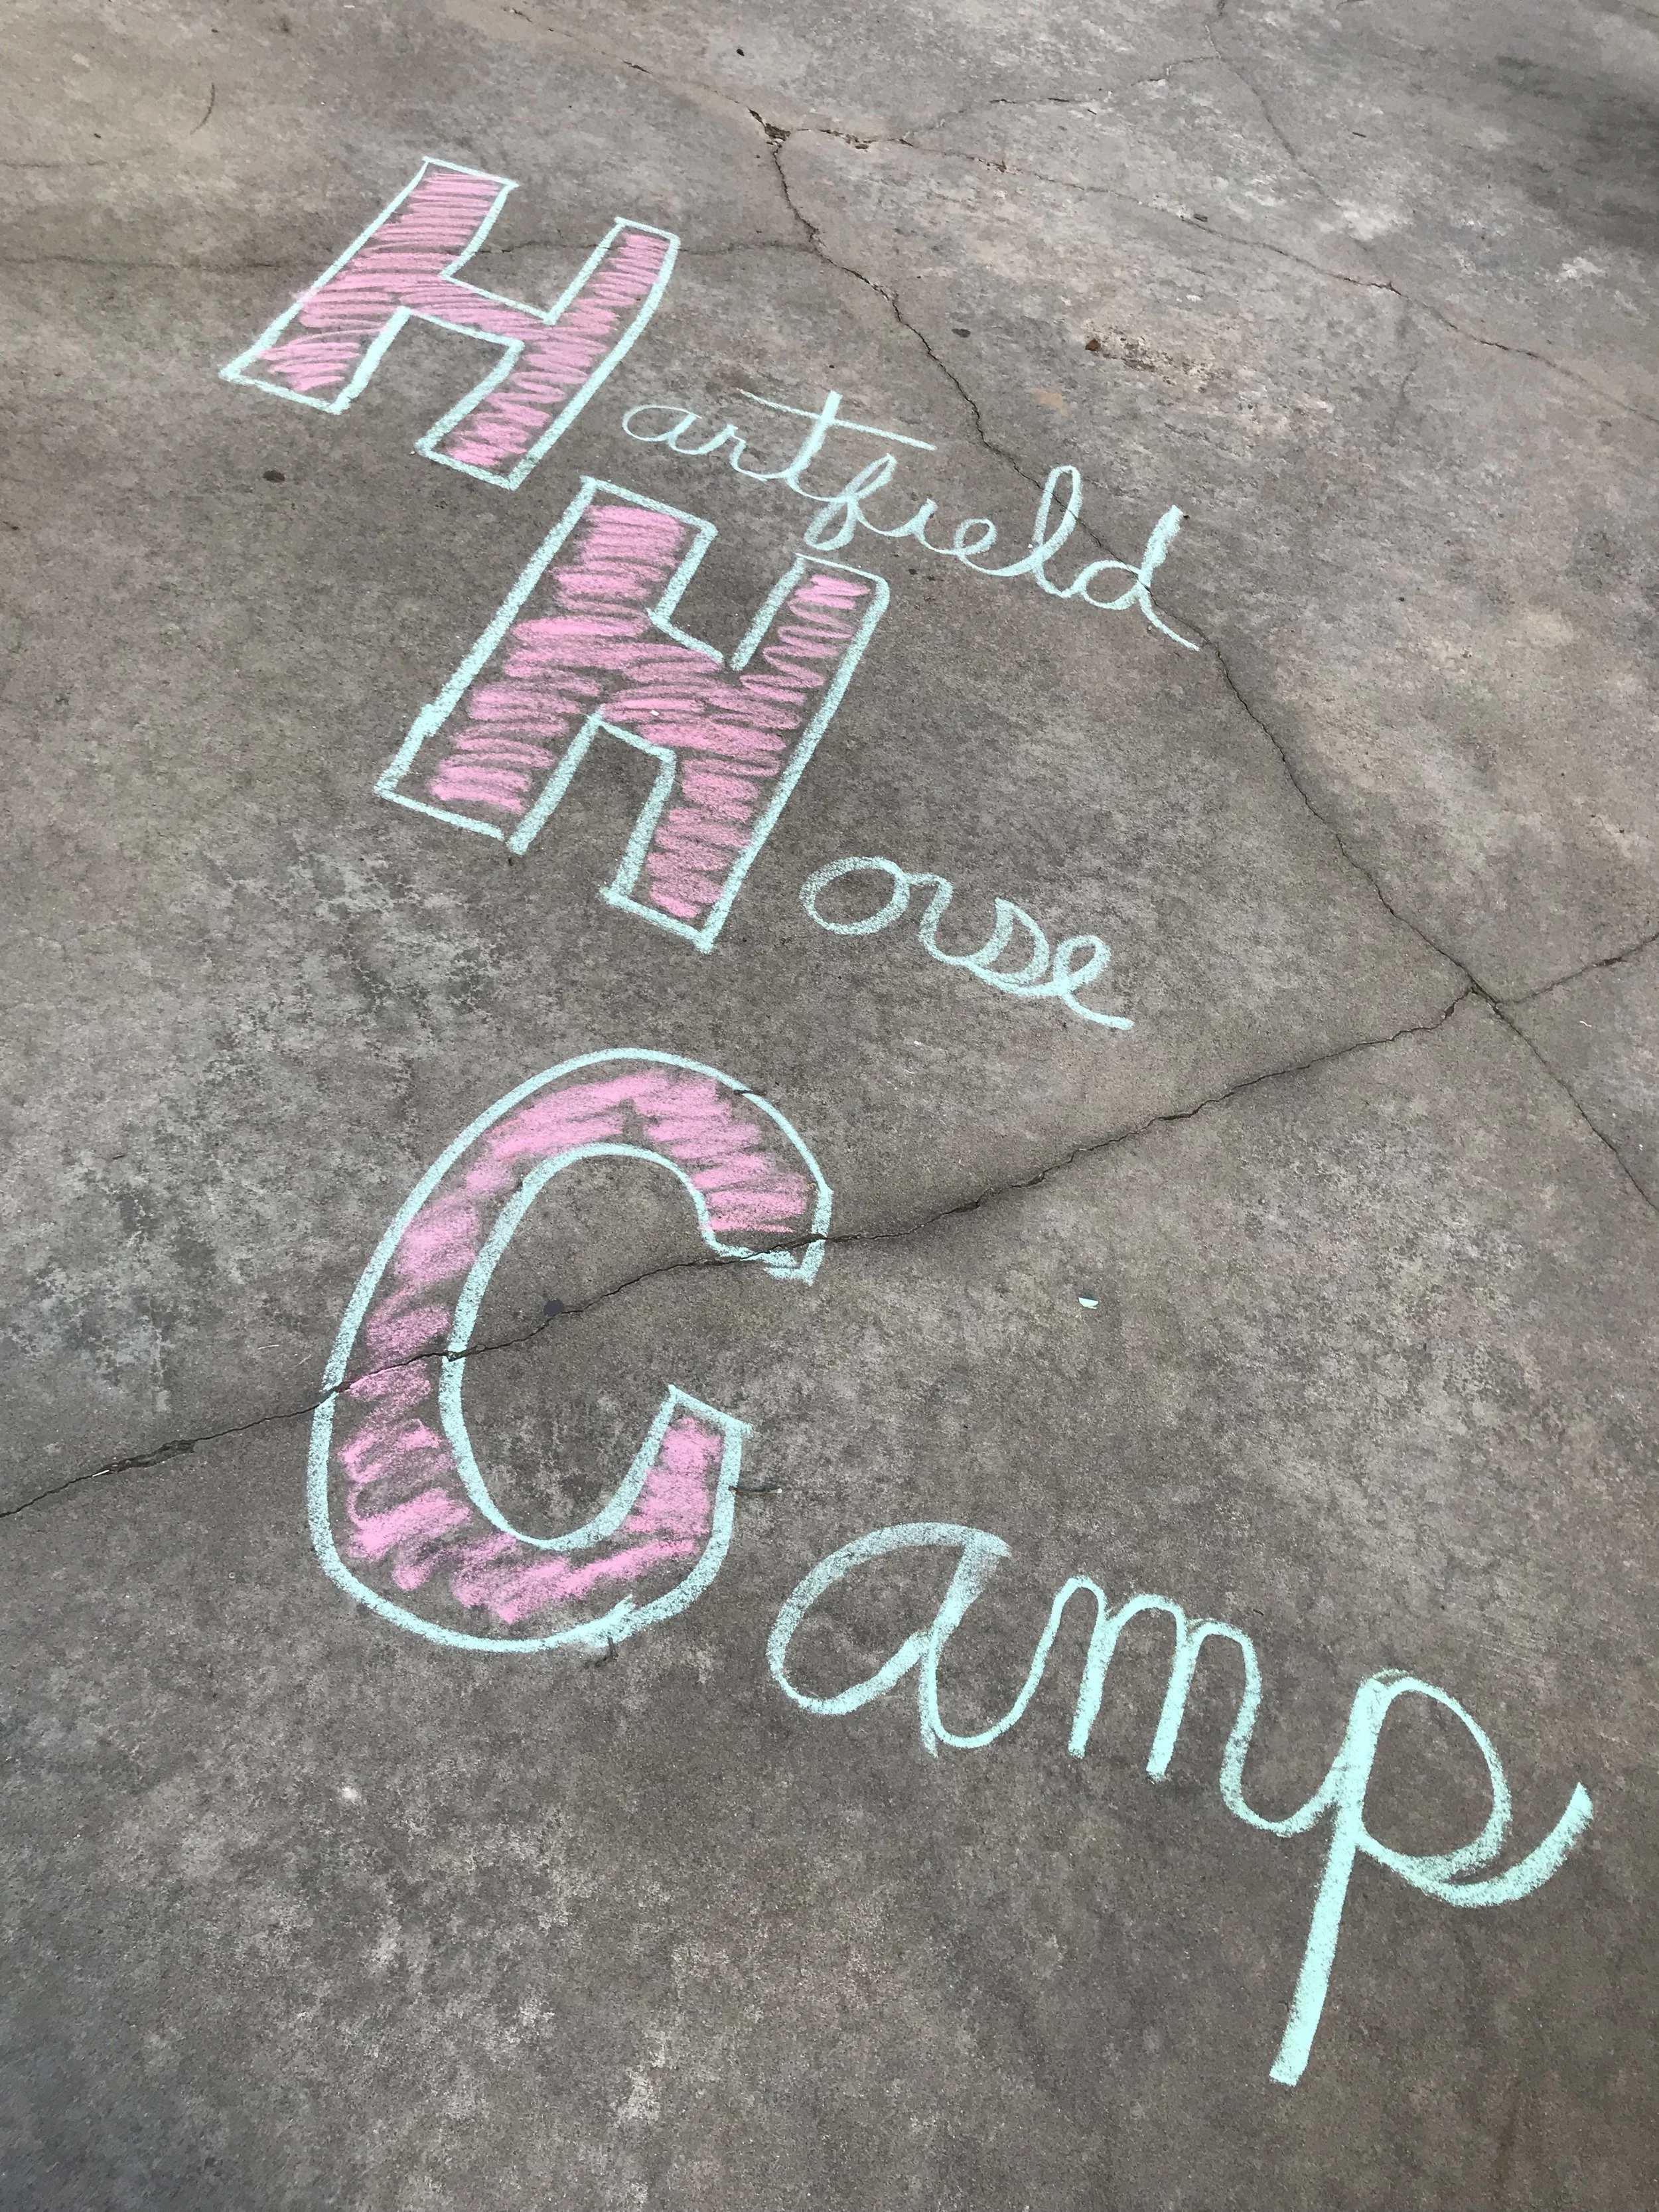 Hartfield
Horse
Camp